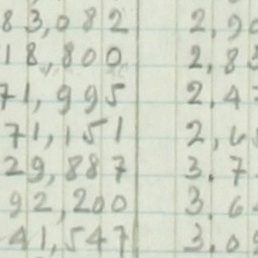 83,082 2,90
18,800 2,83
71,995 2,47
71,151 2,6
29,887 3.7
92,200 3.6
41,547 3.09